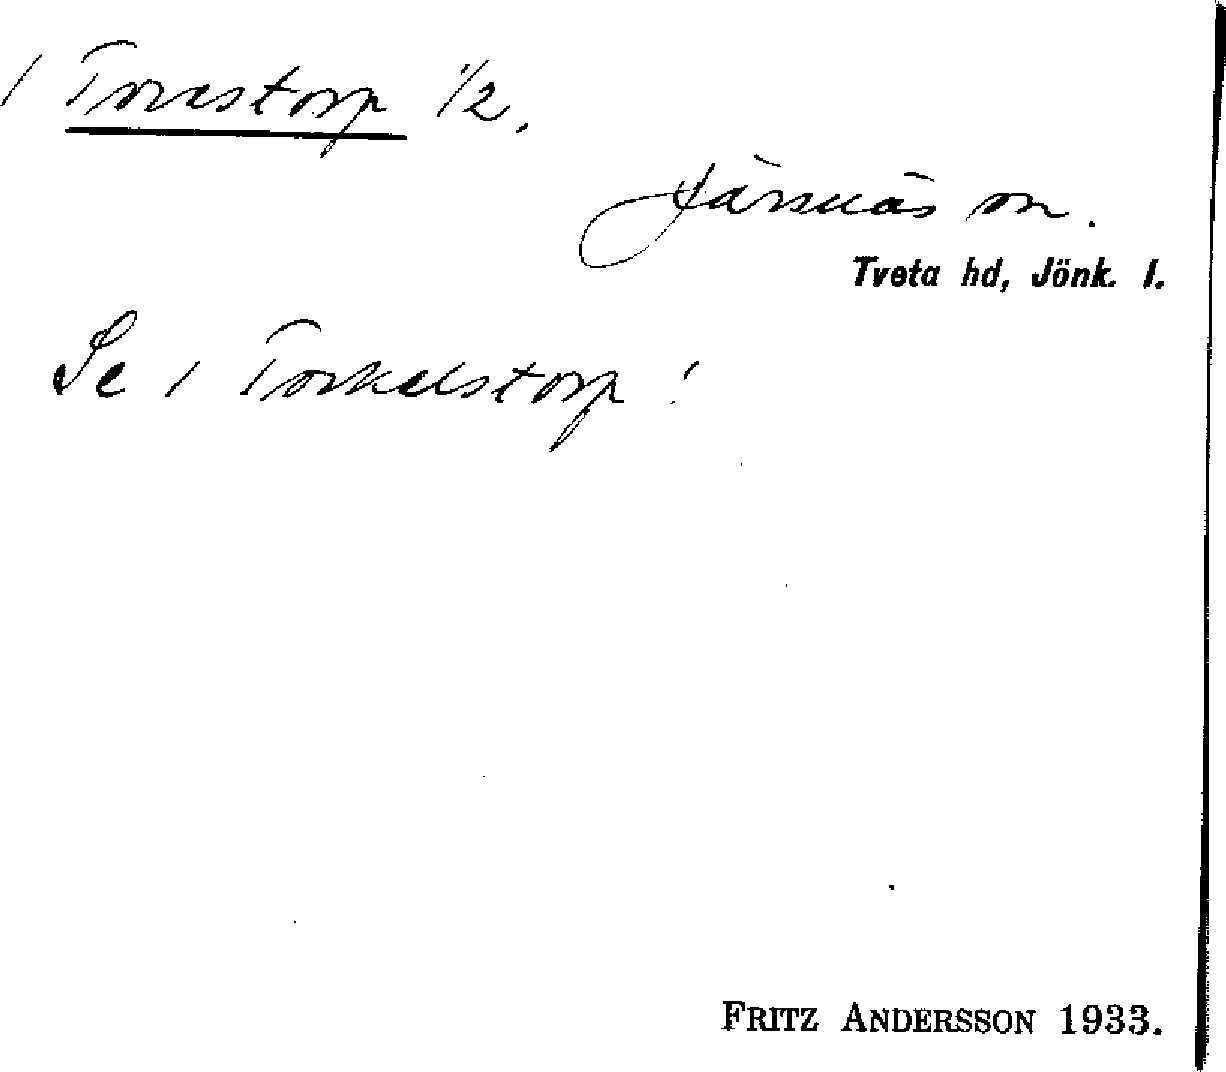 / Torestorp 1/2,
Järsnäs sn.
Tveta hd, Jönk. l.
Se / Torkelstorp !
FRITZ ANDERSSON 1933.